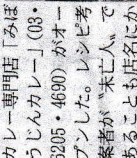 カレー専門店「みぼ
うじんカレー」（03・
6205・4690）がオー
プンした。レシピ考
案者が〝未亡人〟で
あることも店名にか